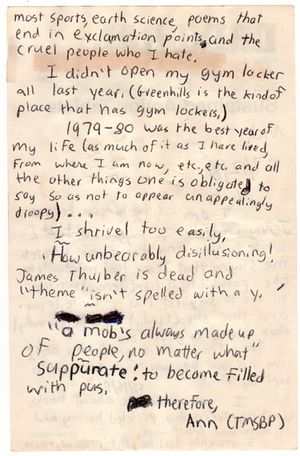 most sports, earth science, poems that
end in exclamation points, and the
cruel people who I hate.
I didn't open my gym locker
all last year. (Greenhills is the kind of
place that has gym lockers.)
1979-80 was the best year of
my life (as much of it as I have lived
from where I am now, etc, etc. and all
the other things one is obligated to
say so as not to appear unappealingly
droopy) . . .
I shrivel too easily.
How unbearably disillusioning!
James Thurber is dead and
"theme" isn't spelled with a y.
"a mob's always made up
of people, no matter what"
suppurate: to become filled
with pus.
therefore,
Ann (TMSBP)